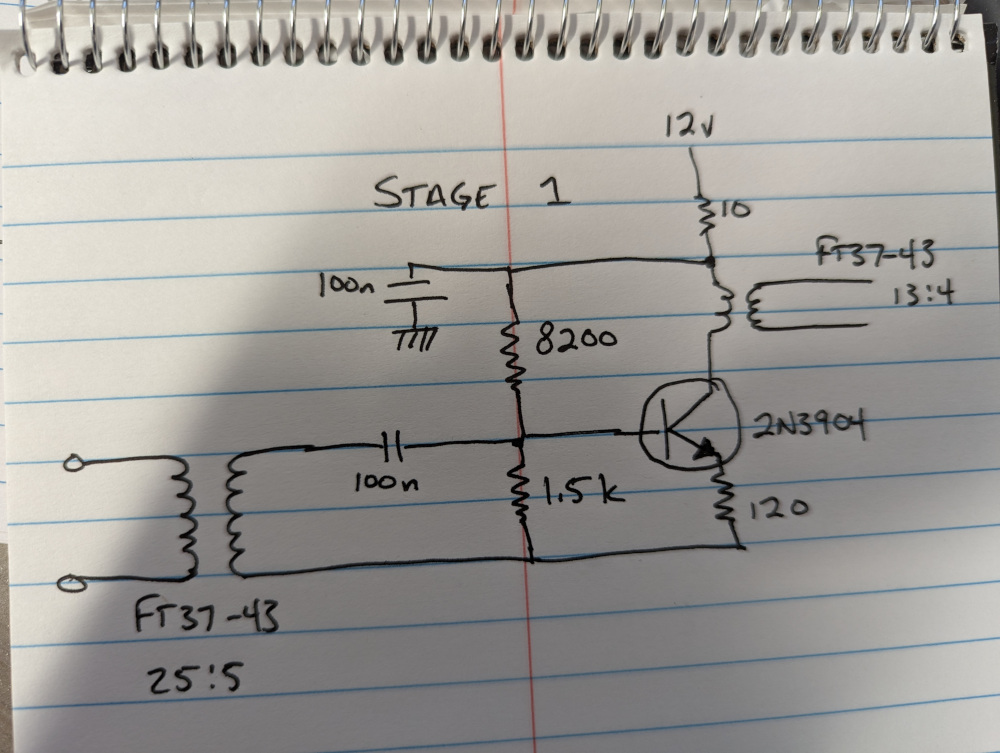 12v
STAGE 1
10
FT37-43
13:4
100n
8200
2N3904
100n
1.5k
120
FT37-43
25:5